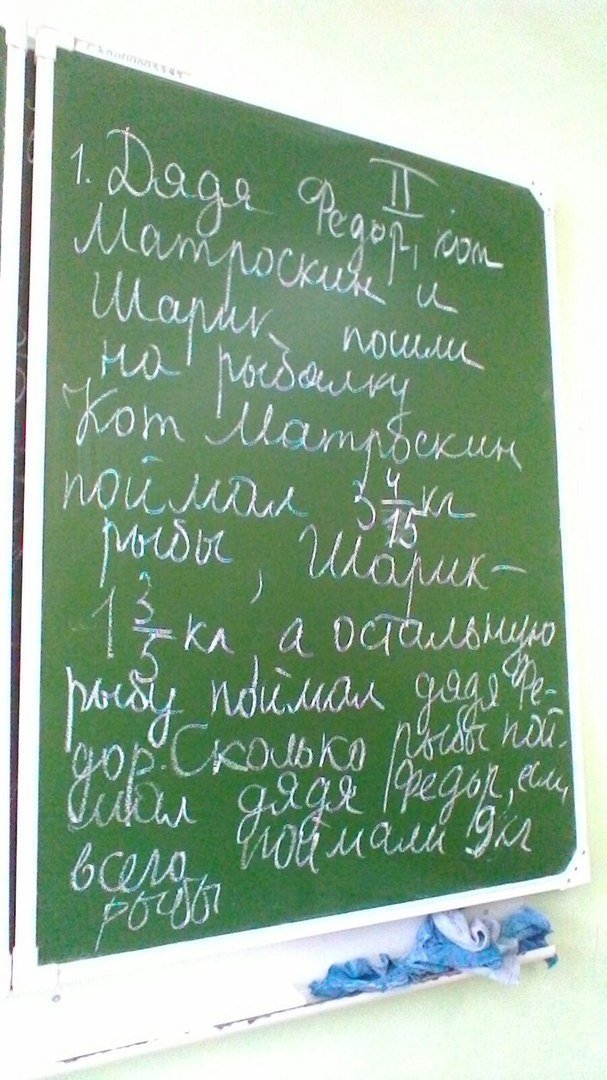 II
1. Дядя Федор, кот
Матроскин и
Шарик пошли
на рыбалку
Кот Матроскин
поймал 3 4/15 кг
рыбы, Шарик -
1 3/5 кг, а остальную
рыбу поймал дядя Фе-
дор. Сколько рыбы пой-
мал дядя Федор, если
всего поймали 9 кг
рыбы